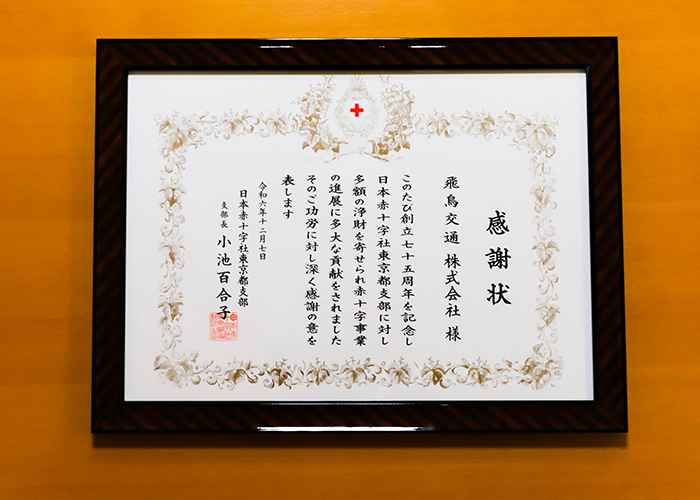 感謝状
飛鳥交通 株式会社 様
このたび創立七十五周年を記念し
日本赤十字社東京都支部に対し
多額の浄財を寄せられ赤十字事業
の進展に多大な貢献をされました
そのご功労に対し深く感謝の意を
表します
令和六年十二月七日
日本赤十字社東京都支部
支部長 小池百合子